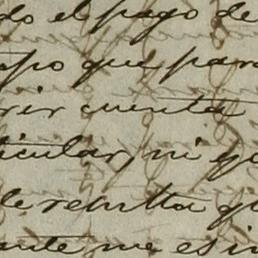 do el pago de
mpo que para
rir cuenta
ticular, ni q
le resulta q
ante me es in